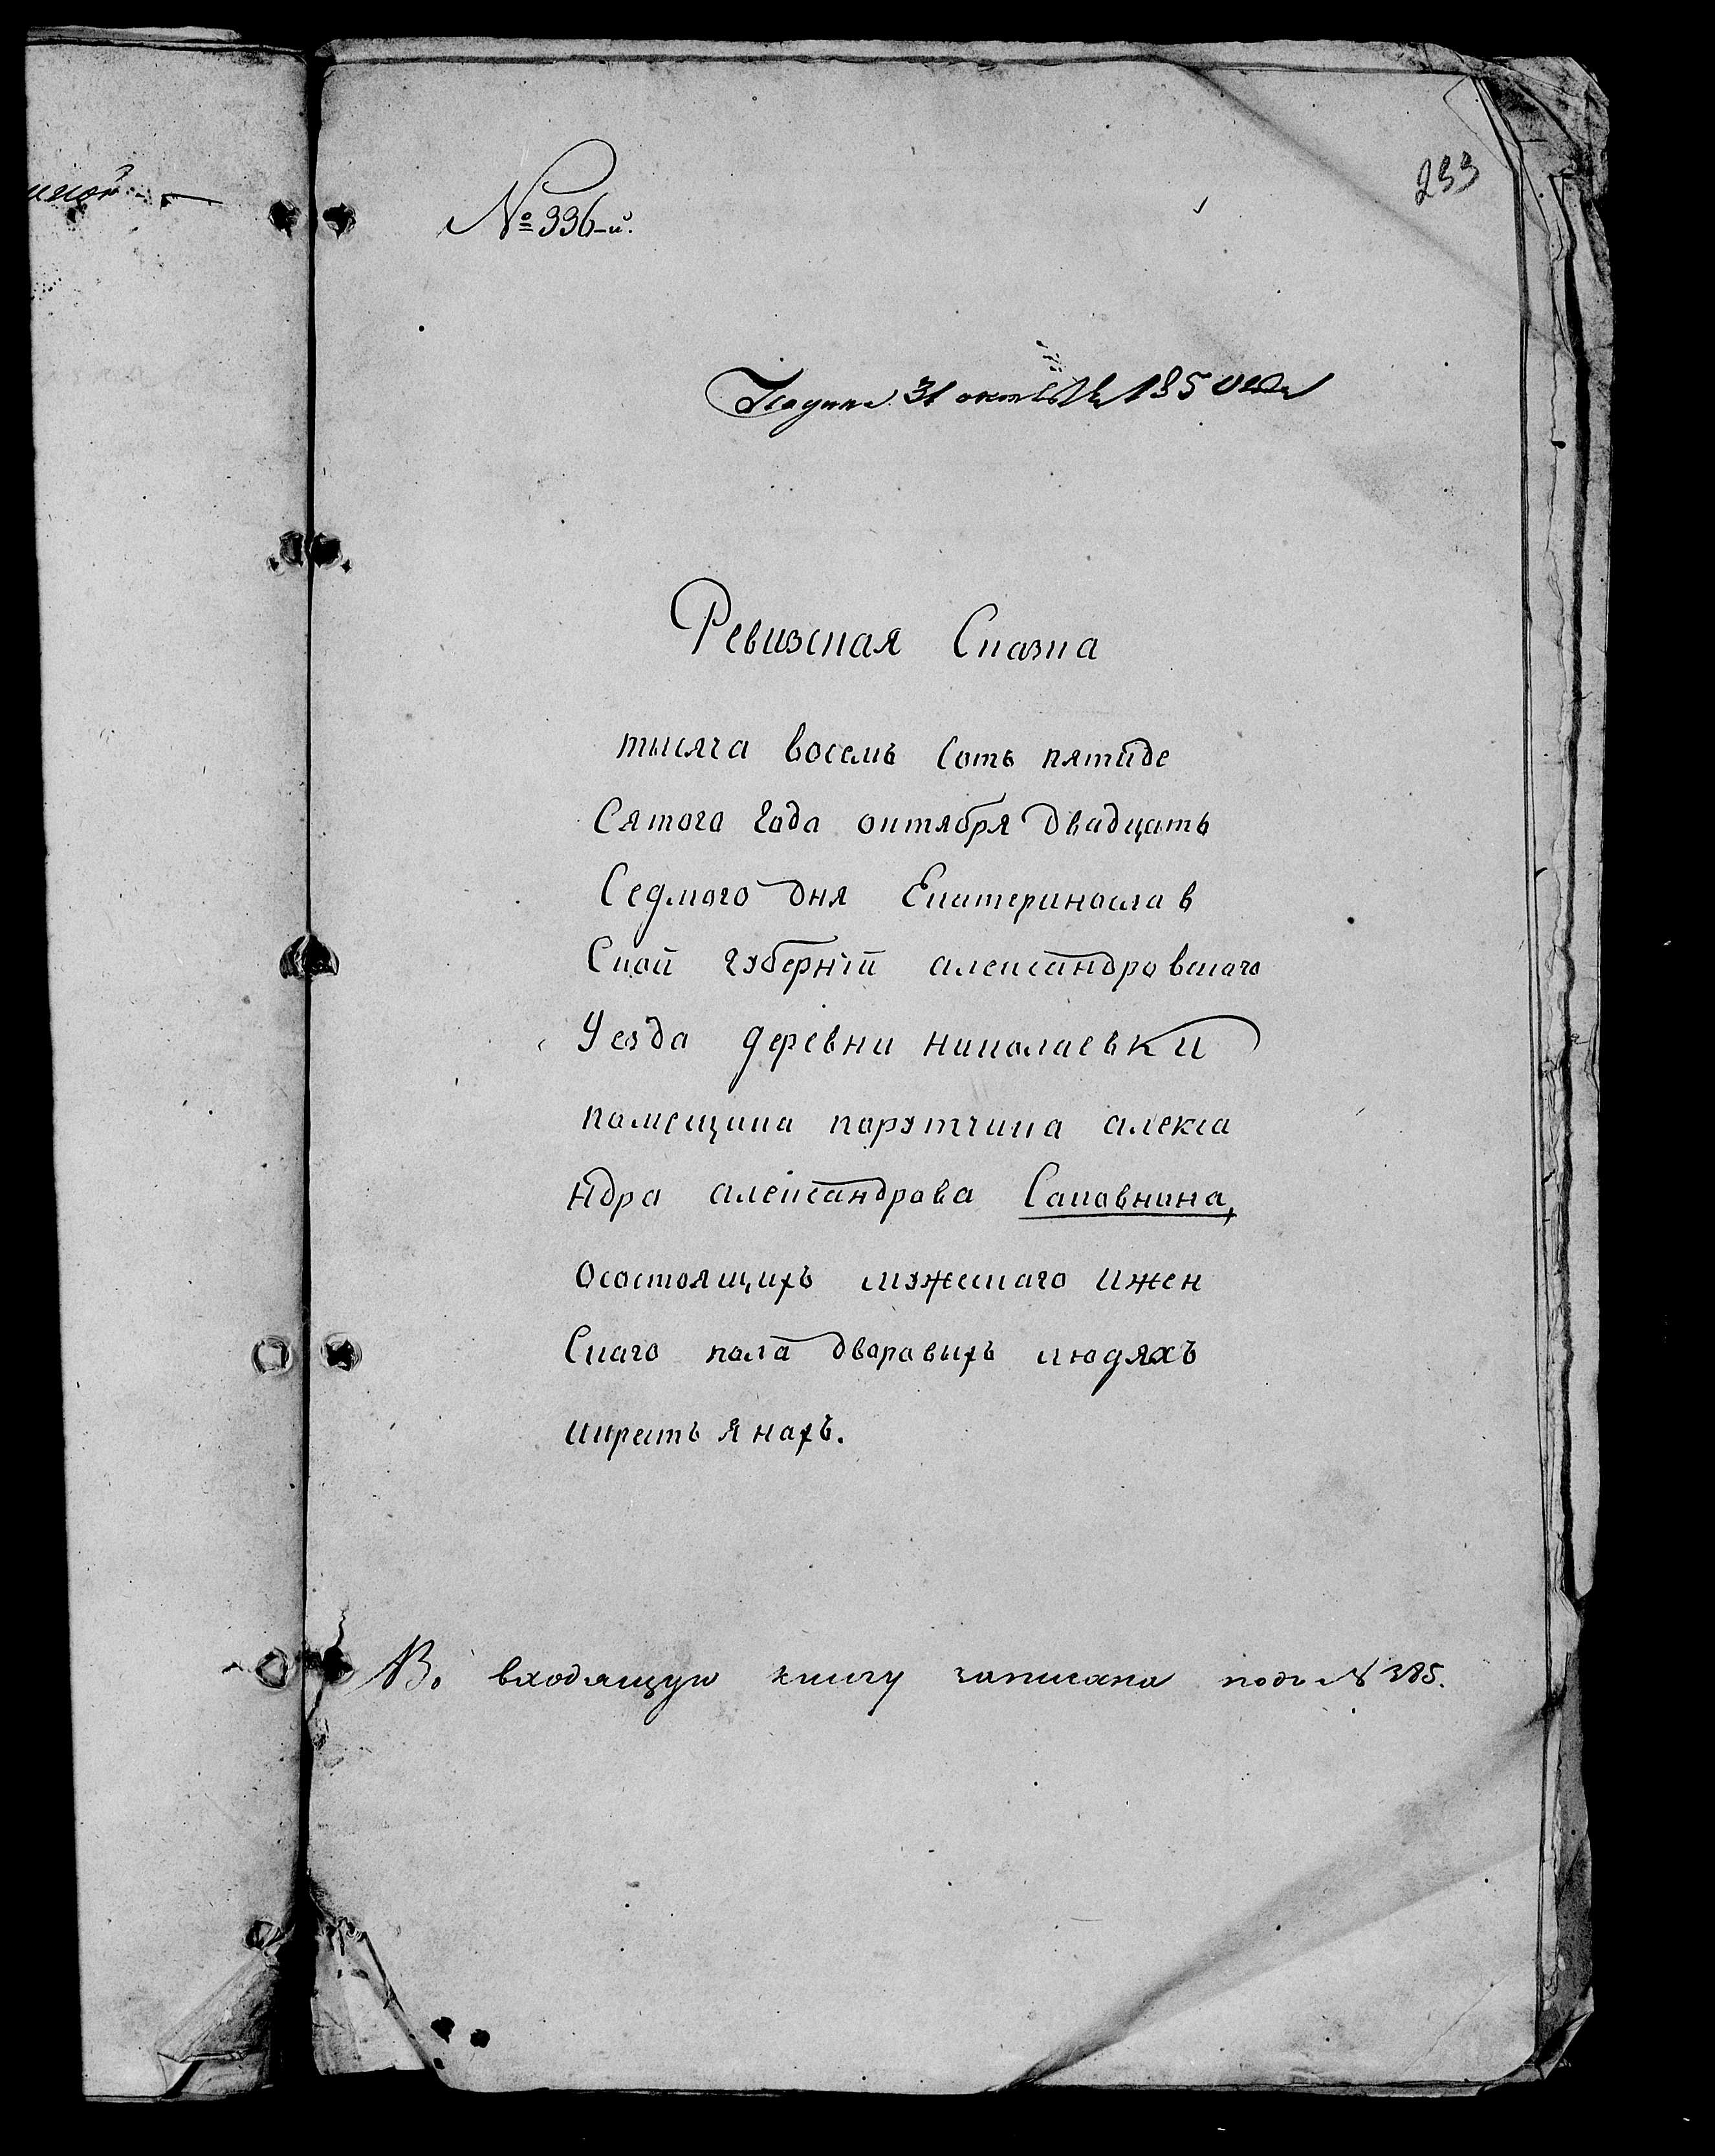 233
№ 336-й.
Подана 31 октября 1850 года
Ревизская Сказка
тысяча восемь сотъ пятиде
Сятого года октября двадцать
Седмого дня Екатеринослав
Ской губерніи александровскаго
Уезда деревни николаевки
помещика порутчика алекса
ндра александрова Саковнина,
осостоящихъ мужескаго ижен
Скаго пола дворовыхъ людяхъ
икрестьянахъ.
Во входящую книгу записана подъ № 385.